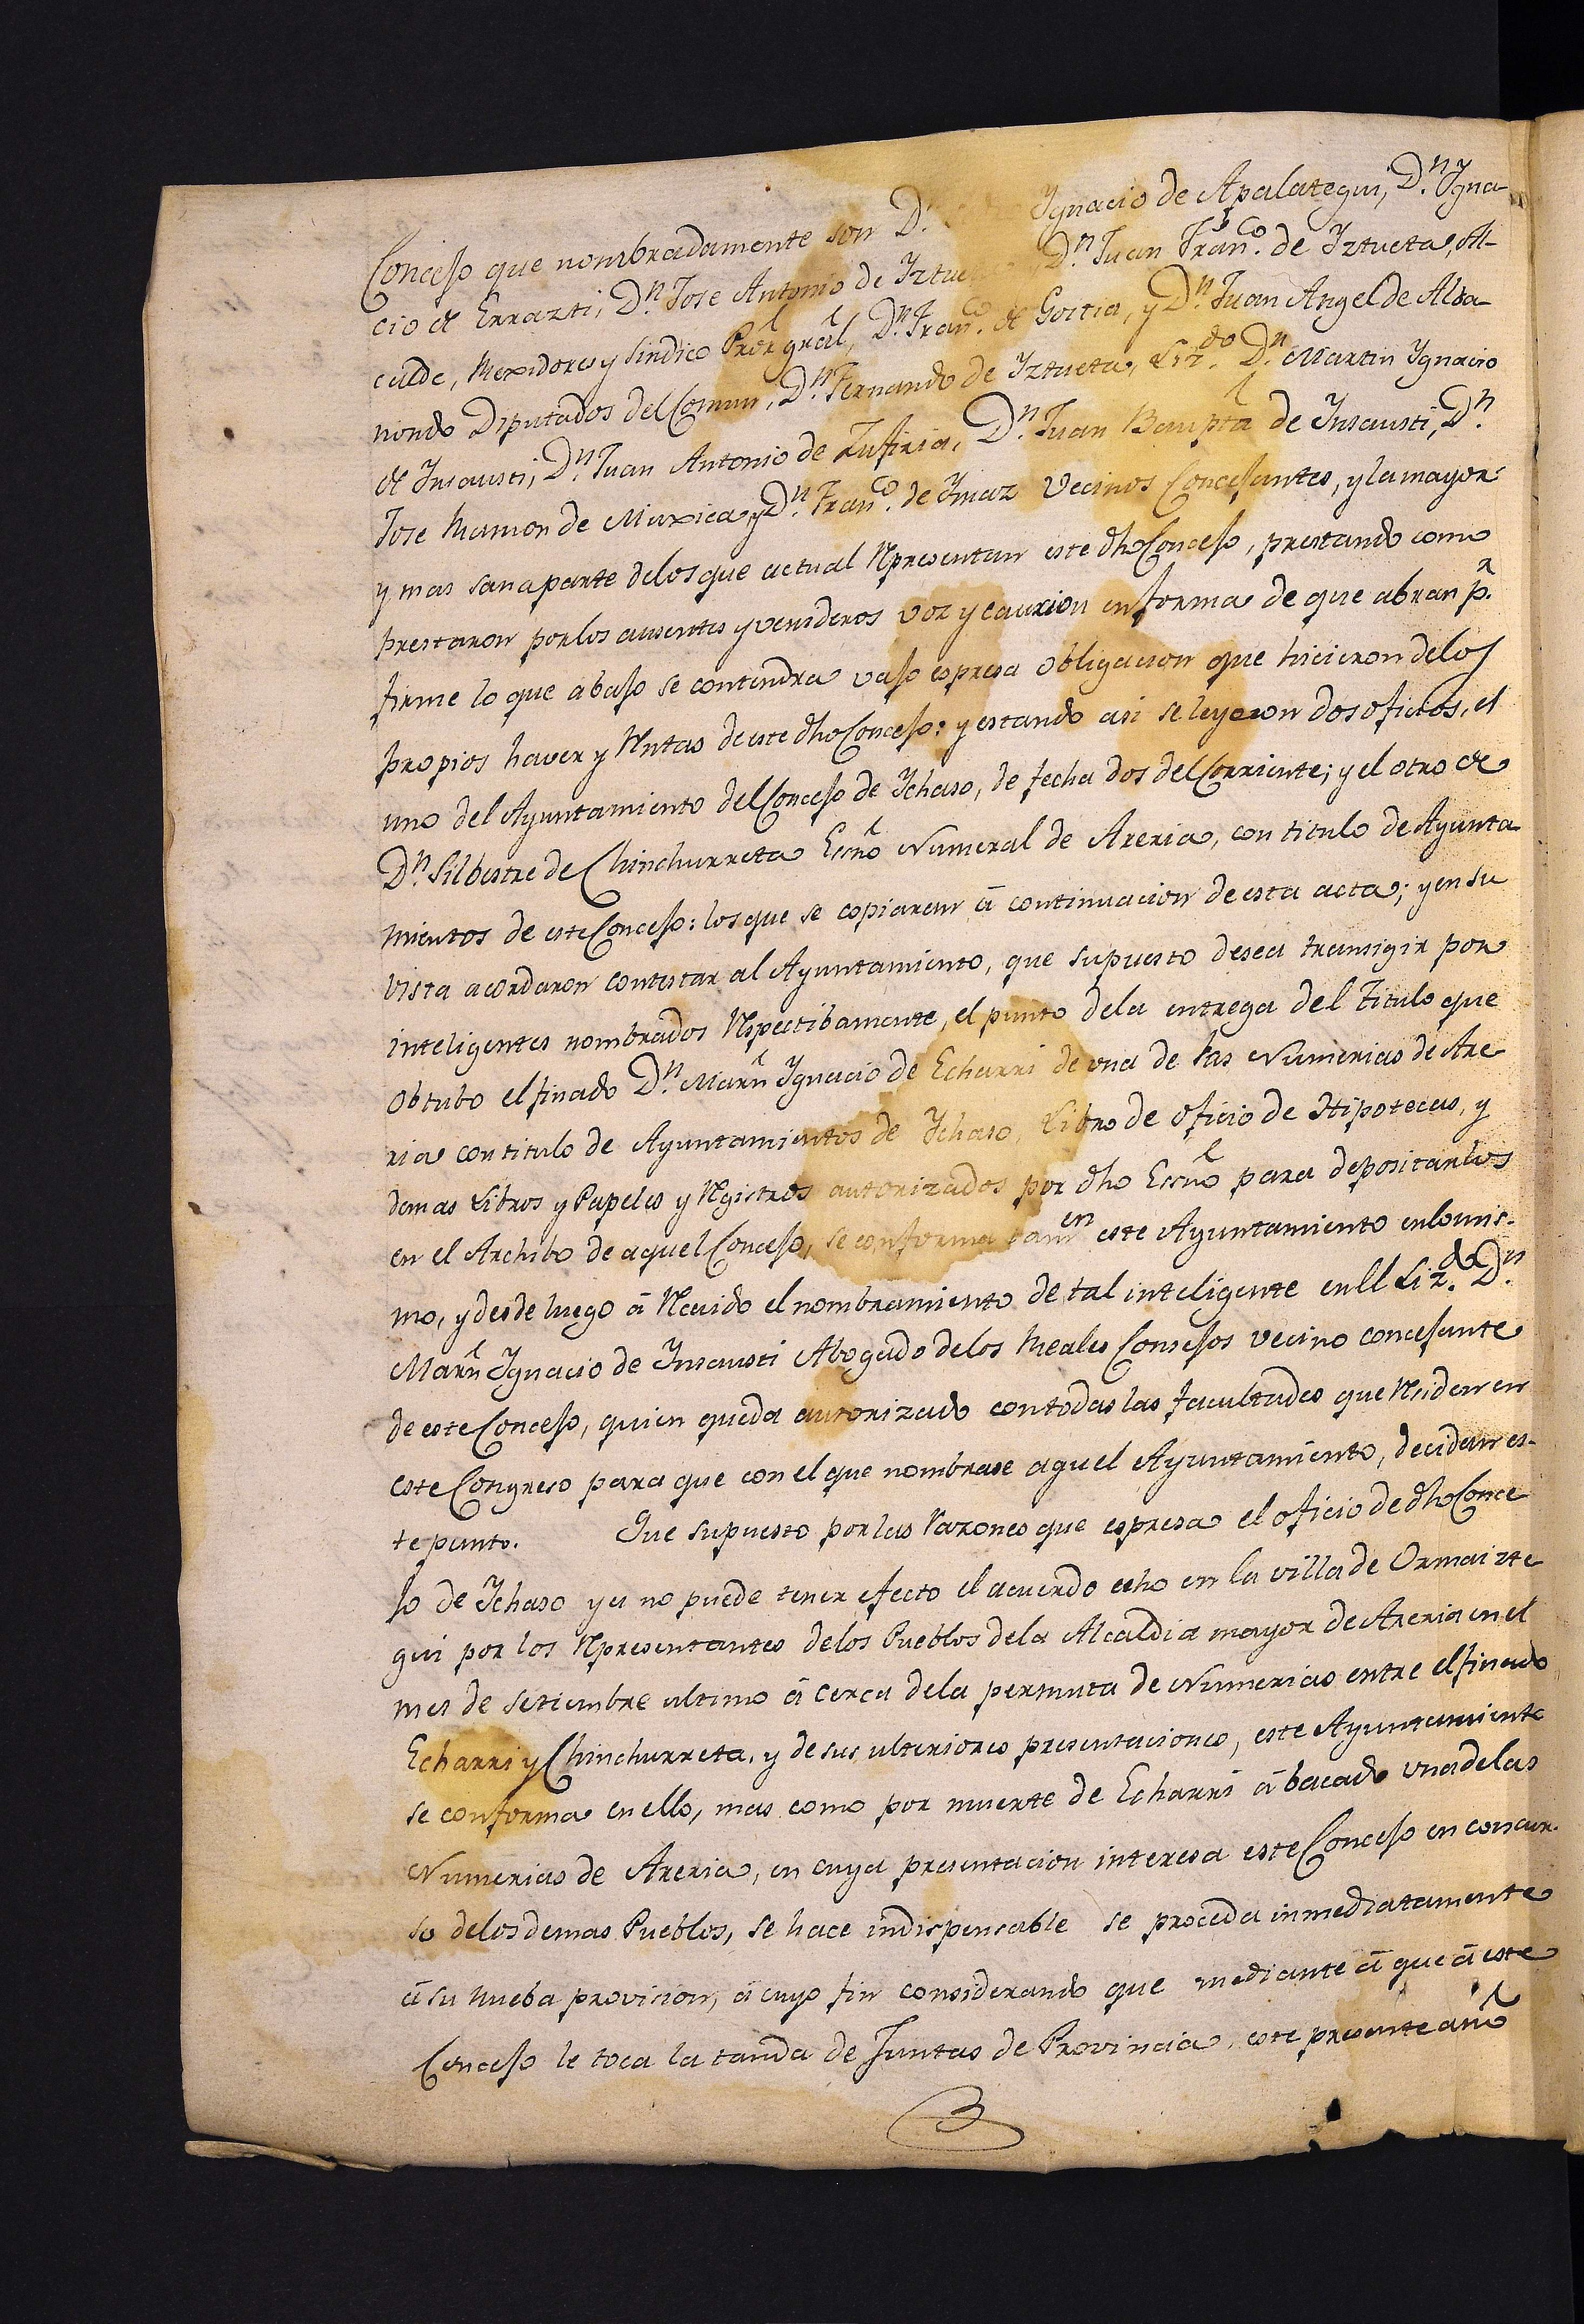 Concejo que nombradamente son D.n Ygnacio de Apalategui, D.n Ygna-
cio de Errazti, D.n Jose Antonio de Iztueta, D.n Juan Fran.co de Yztueta, Al-
calde, Rexidores y Sindico Pror gral, D.n Fran.co de Goitia, y D.n Juan Angel de Alda-
nondo Diputados del Comun, D.n Fernando de Yztueta, Liz.do D.n Martin Ygnacio
de Insausti, D.n Juan Antonio de Zufiria, D.n Juan Baupta de Insausti, D.n
Jose Ramon de Muxica, y D.n Fran.co de Ymaz Vecinos Concejantes, y la mayor
y mas sana parte delos que actual Rpresentan este dho Concejo, prestando como
prestaron por los ausentes y venideros voz y caucion en forma de que abran p.r
firme lo que abajo se contendra vajo espresa obligacion que hicieron delos
propios haver y Rntas de este dho Concejo: y estando asi se leyeron dos oficios, el
uno del Ayuntamiento del Concejo de Ychaso, de fecha dos del Corriente; y el otro de
D.n Silbestre de Chinchurreta Esno Numeral de Areria, con titulo de Ayunta-
mientos de este Concejo: los que se copiaran á continuacion de esta acta; y en su
vista acordaron contestar al Ayuntamiento, que supuesto desea transigir por
inteligentes nombrados Rspectibamente, el punto dela entrega del Titulo que
obtubo el finado D.n Marn Ygnacio de Echarri de una de las Numerias de Are-
ria con titulo de Ayuntamientos de Ychaso, Libro de oficio de Hipotecas, y
demas Libros y Papeles y Rgistros autorizados por dho Essno para depositarlos
en el Archibo de aquel Concejo, se conforma tamen este Ayuntamiento en lo mis-
mo, y desde luego á Recaido el nombramiento de tal inteligente en ll Liz.do D.n
Marn Ygnacio de Insausti Abogado delos Reales Consejos vecino concejante
de este Concejo, quien queda autorizado con todas las facultades que Rsiden en
este Congreso para que con el que nombrase aquel Ayuntamiento, decidan es-
te punto. Que supuesto por las razones que espresa el oficio de dho Conce-
jo de Ychaso ya no puede tener efecto el acuerdo echo en la villa de Ormaizte-
gui por los Rpresentantes delos Pueblos dela Alcaldia mayor de Areria en el
mes de setiembre ultimo á cerca dela permuta de Numerias entre el finado
Echarri y Chinchurreta, y de sus ulteriores presentaciones, este Ayuntamiento
se conforma en ello, mas como por muerte de Echarri á bacado una delas
Numerias de Areria, en cuya presentacion interesa este Concejo en concur-
so delos demas Pueblos, se hace indispensable se proceda inmediatamente
á su nueba provision, á cuyo fin considerando que mediante á que á este
Concejo le toca la tanda de Juntas de Provincia, este presente año